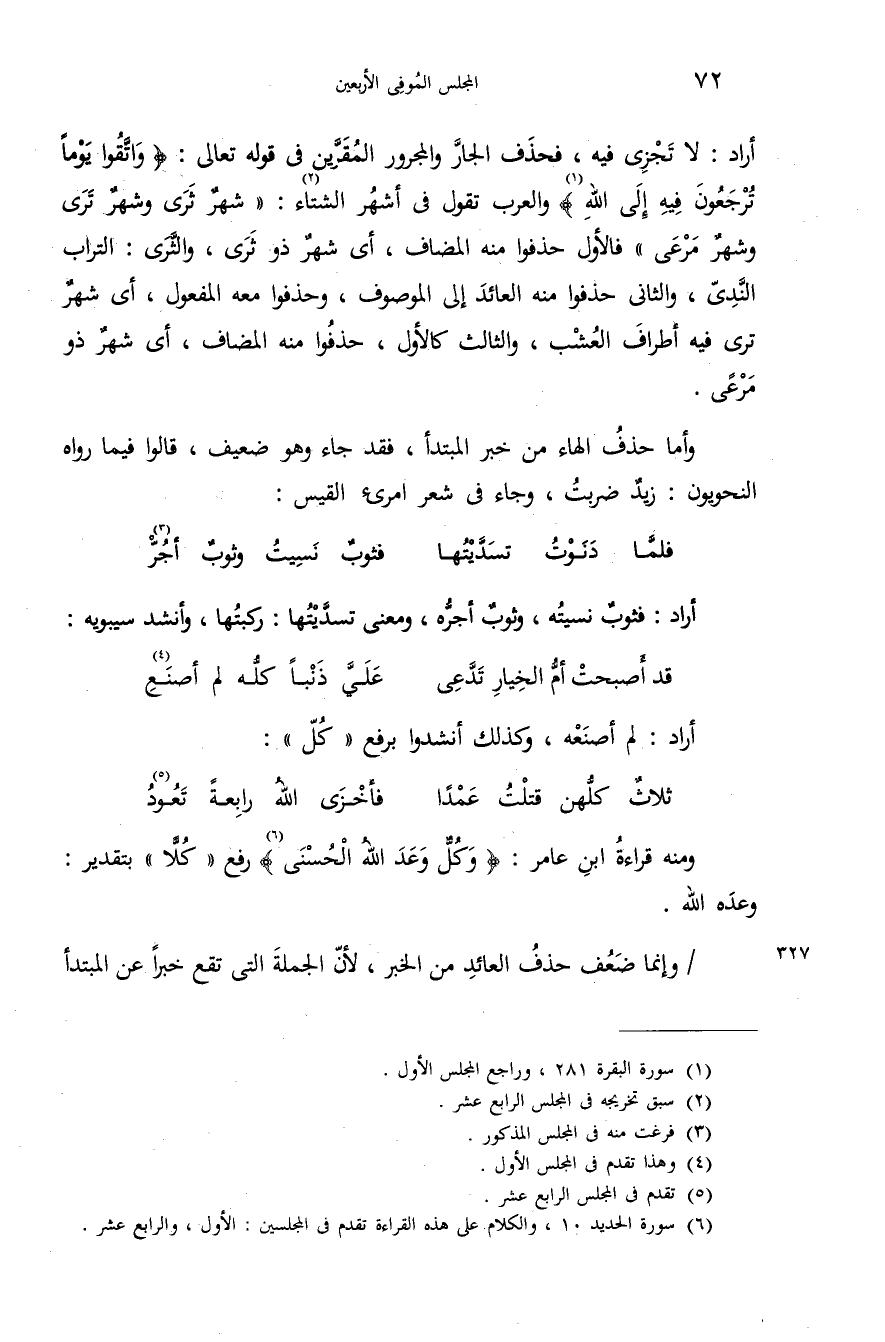 ٧٢
المجلس المُوفِى الأربعين
أراد : لا تَجْزِى فيه ، فحذَف الجارَّ والمجرور المُقَرَّين فى قوله تعالى : ﴿ وَاتَّقُوا يَوْماً
تُرْجَعُونَ فِيهِ إِلَى اللهِ ﴾(١) والعرب تقول فى أشهُر الشتاء(٢) : « شهرٌ ثَرَى وشهرٌ تَرَى
وشهرٌ مَرْعَى » فالأول حذفوا منه المضاف ، أى شهرٌ ذو ثَرَى ، والثَّرَى : التراب
النَّدِىّ ، والثانى حذفوا منه العائدَ إلى الموصوف ، وحذفوا معه المفعول ، أى شهرٌ
ترى فيه أطرافَ العُشْب ، والثالث كالأول ، حذفُوا منه المضاف ، أى شهرٌ ذو
مَرْعًى .
وأما حذفُ الهاء من خبر المبتدأ ، فقد جاء وهو ضعيف ، قالوا فيما رواه
النحويون : زيدٌ ضربتُ ، وجاء فى شعر امرىء القيس :
فلمَّـا دَنَـوْتُ تسَدَّيْتُهـا فثوبٌ نَسِيتُ وثوبٌ أجُرُّ(٣)
أراد : فثوبٌ نسيتُه ، وثوبٌ أجرُّه ، ومعنى تسدَّيْتُها : ركبتُها ، وأنشد سيبويه :
قد أَصبحتْ أمُّ الخِيارِ تَدَّعِى عَلَـىَّ ذَنْبـاً كلُّـه لم أصنَـعِ(٤)
أراد : لم أصنَعْه ، وكذلك أنشدوا برفع « كُلّ » :
ثلاثٌ كلُّهن قتلْتُ عَمْدًا فأخْـزَى اللهُ رابِعـةً تَعُـودُ(٥)
ومنه قراءةُ ابنِ عامر : ﴿ وَكُلٌّ وَعَدَ اللهُ الْحُسْنَى ﴾(٦) رفع « كُلًّا » بتقدير :
وعدَه الله .
٣٢٧ / وإنما ضَعُف حذفُ العائدِ من الخبر ، لأنّ الجملةَ التى تقع خبراً عن المبتدأ
(١) سورة البقرة ٢٨١ ، وراجع المجلس الأول .
(٢) سبق تخريجه فى المجلس الرابع عشر .
(٣) فرغت منه فى المجلس المذكور .
(٤) وهذا تقدم فى المجلس الأول .
(٥) تقدم فى المجلس الرابع عشر .
(٦) سورة الحديد ١٠ ، والكلام على هذه القراءة تقدم فى المجلسين : الأول ، والرابع عشر .